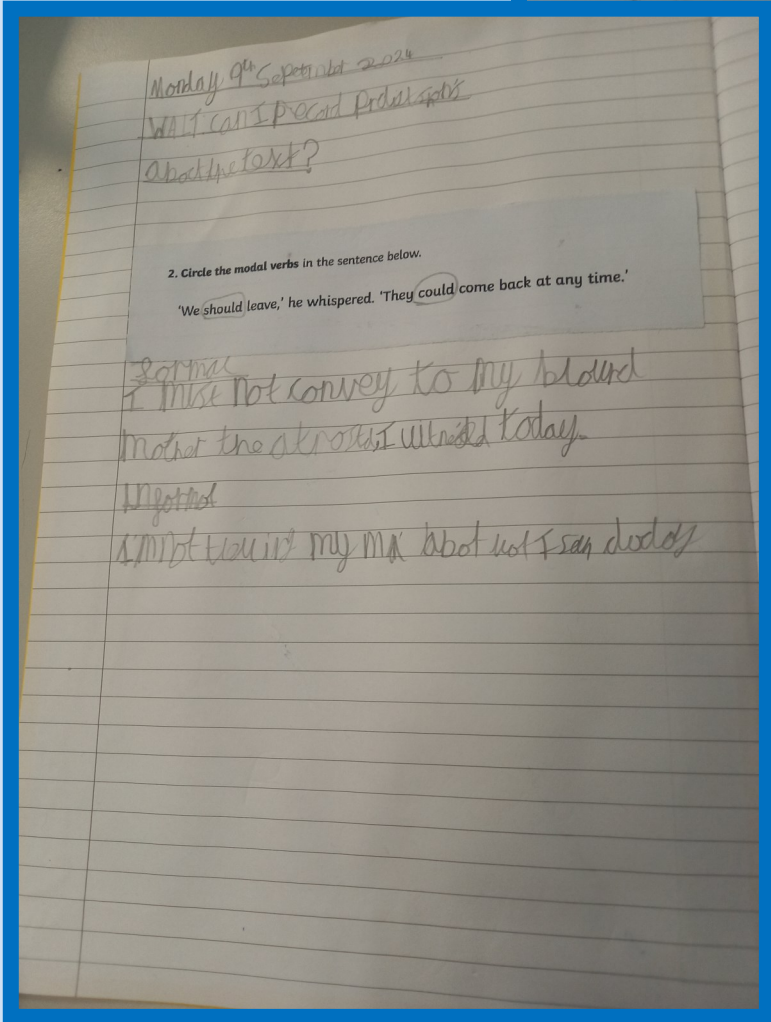 Monday 9th September 2024
WALT can I record predictions
about the text?
2. Circle the modal verbs in the sentence below.
'We should leave,' he whispered. 'They could come back at any time.'
formal
I must not convey to my
mother the I today.
Informal
I'm not my ma abot I